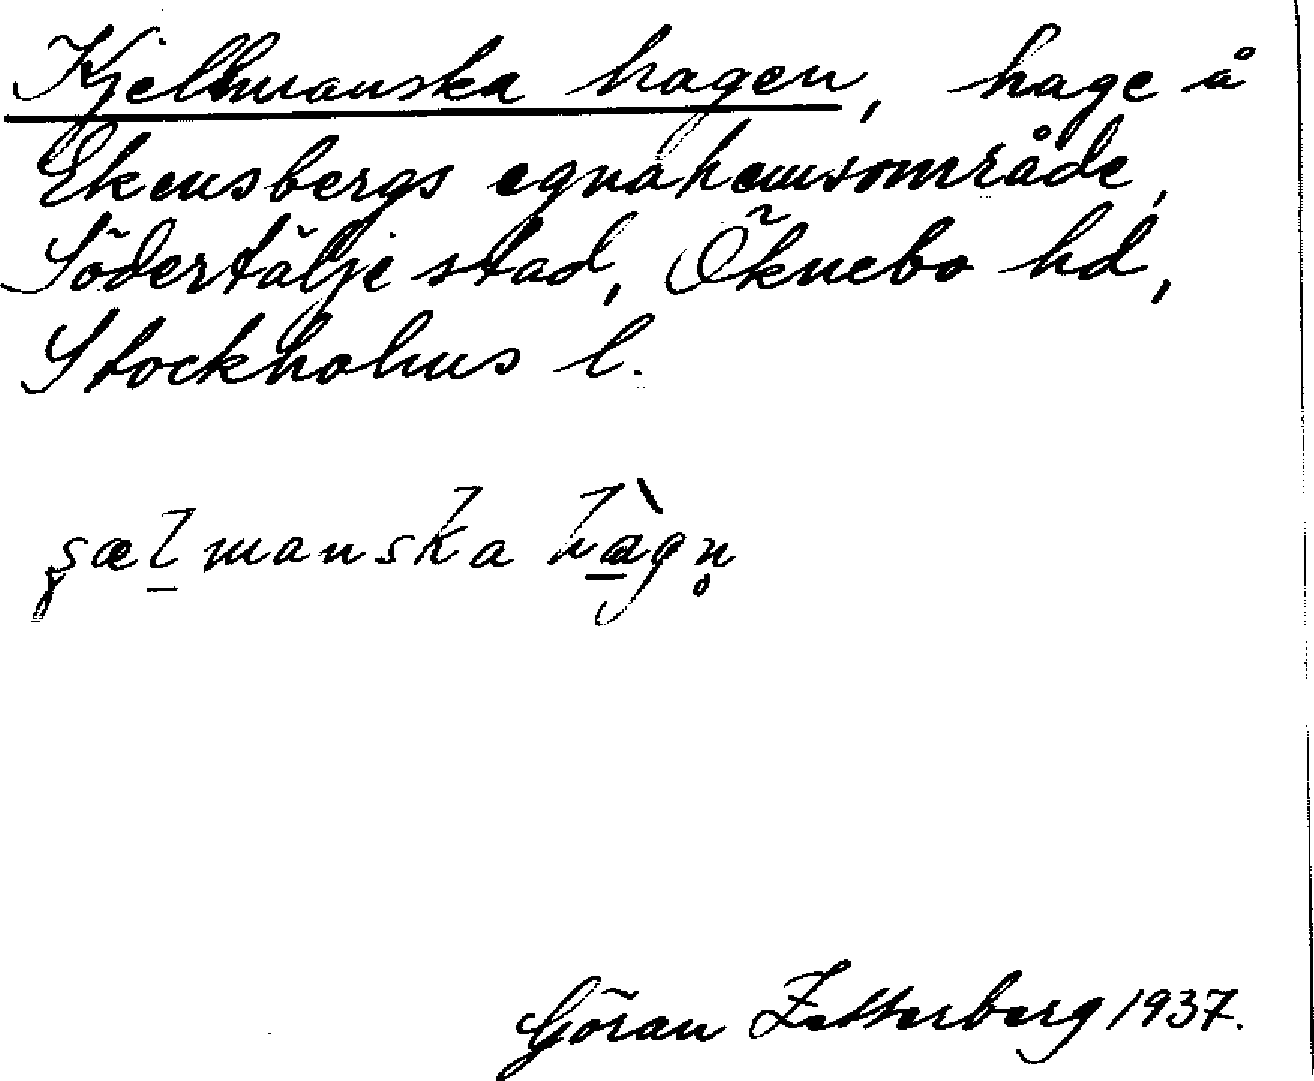 Kjellmanska hagen, hage å
Ekensbergs egnahemsområde,
Södertälje stad, Öknebo hd,
Stockholms l.
hàgn̥
Göran Zetterberg 1937.